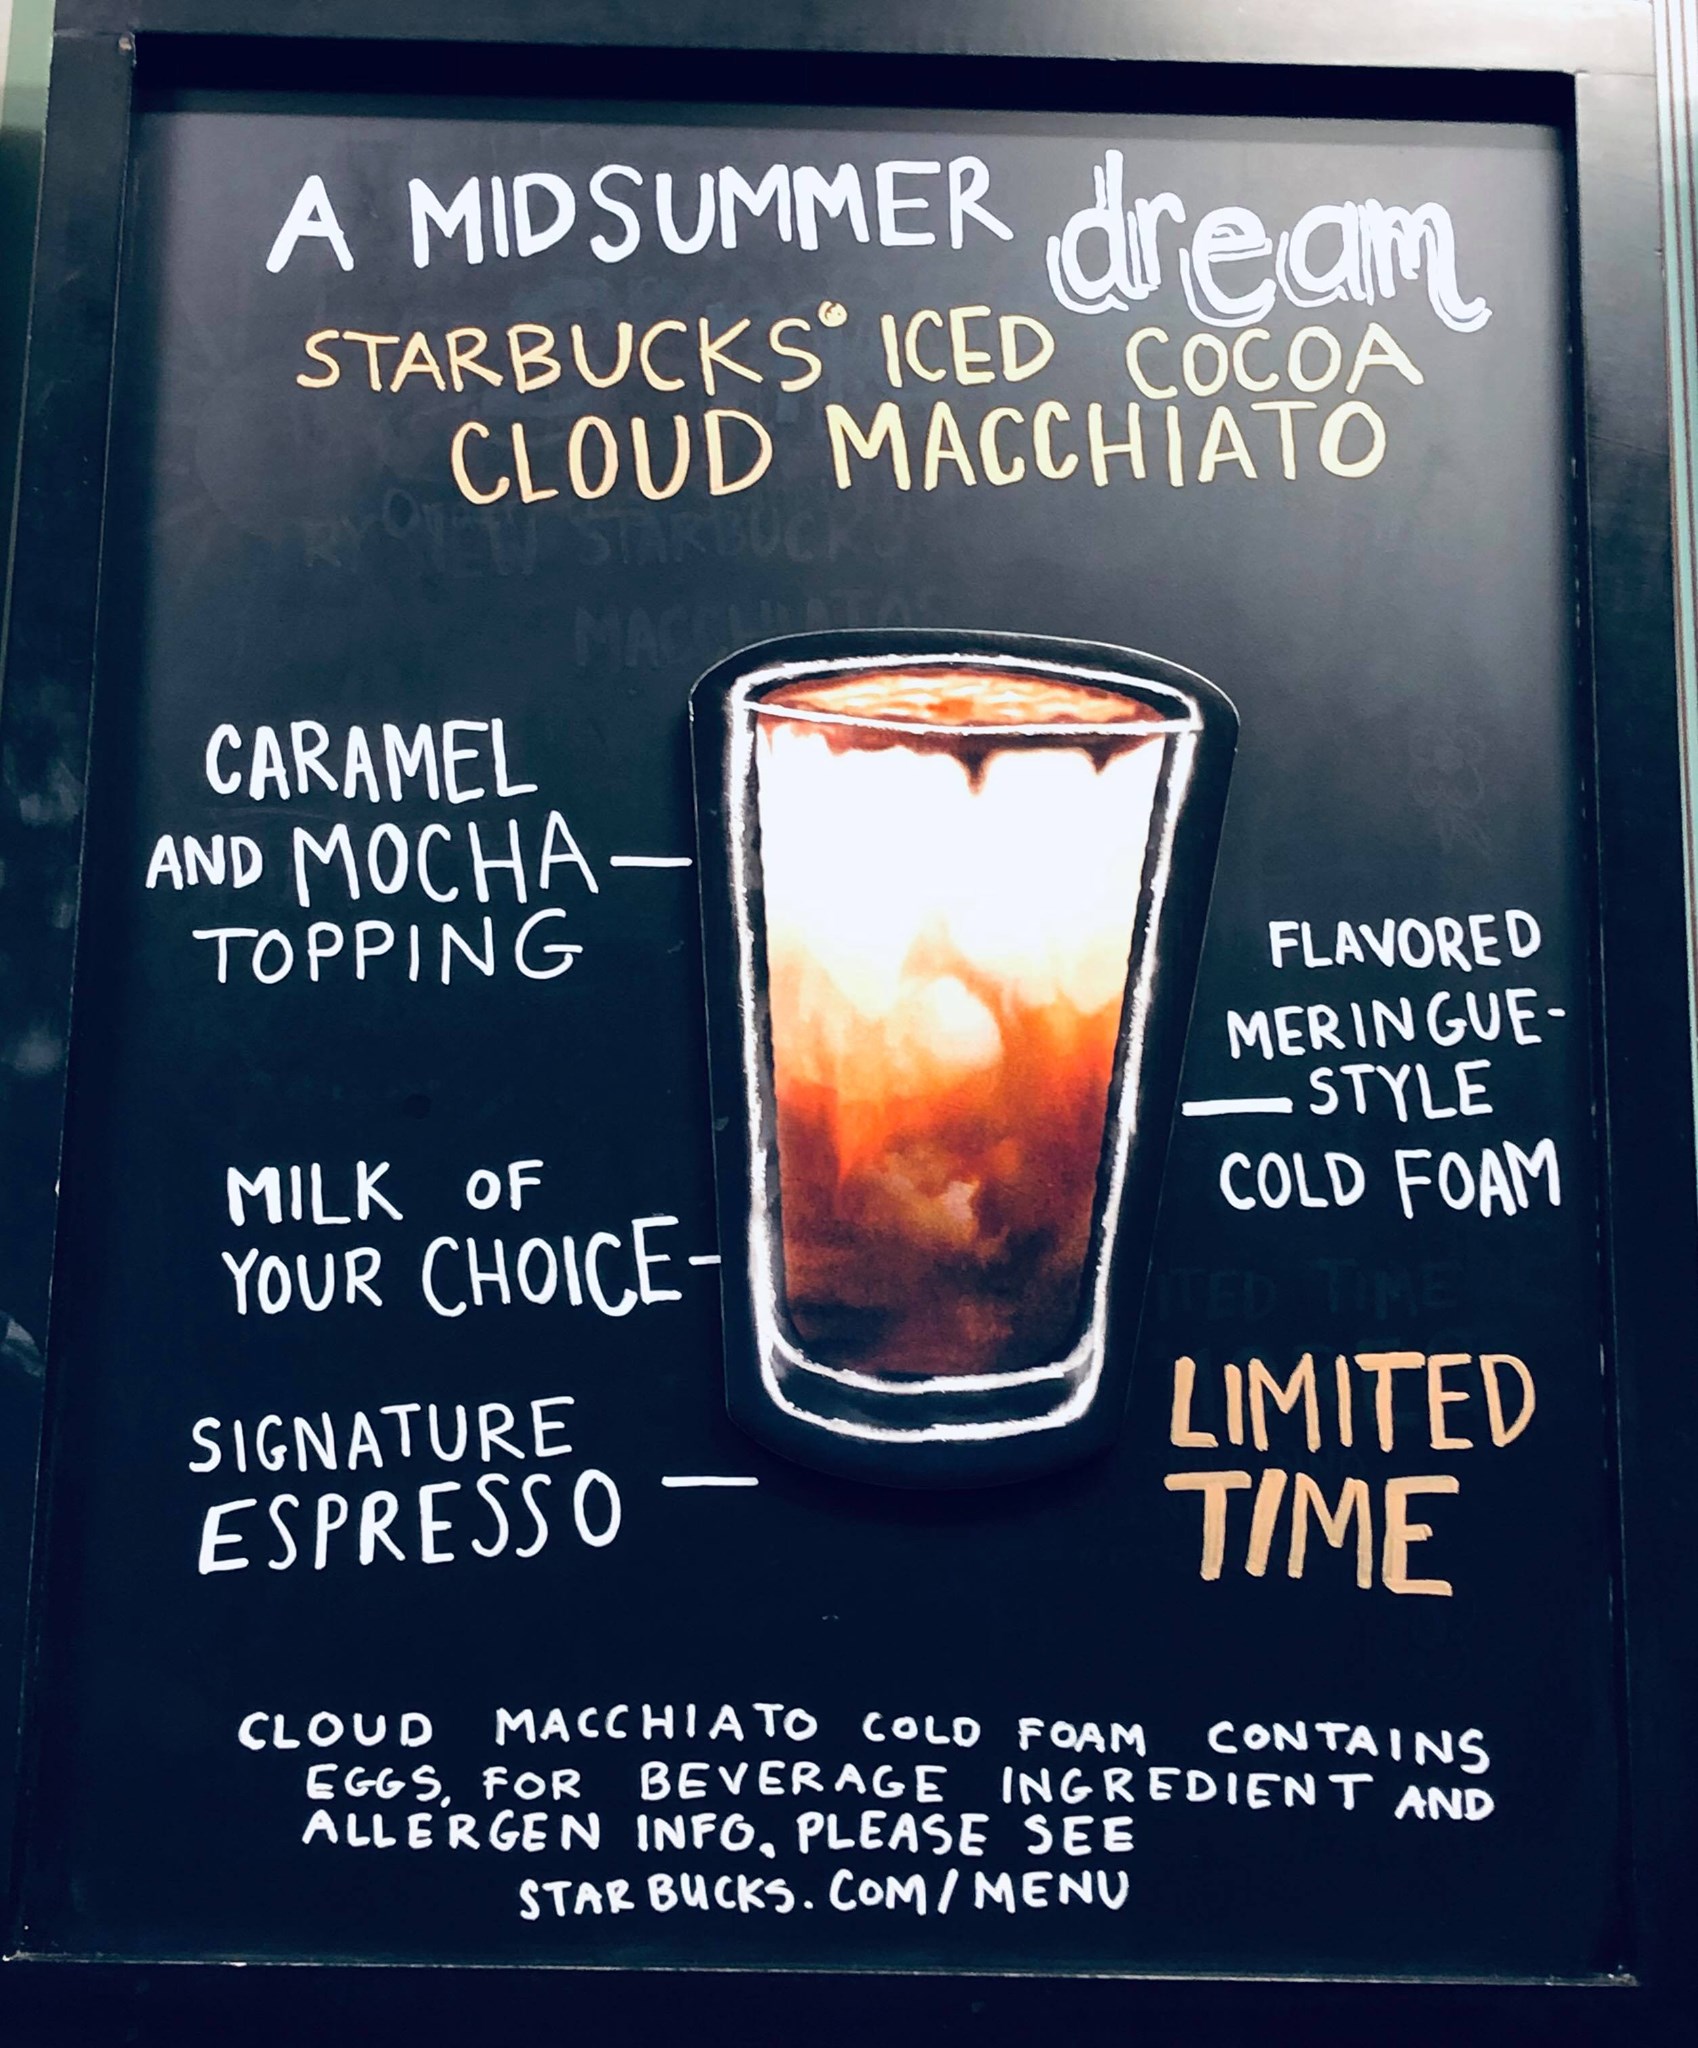 A MIDSUMMER dream
STARBUCKS® ICED COCOA
CLOUD MACCHIATO
CARAMEL
AND MOCHA
TOPPING
FLAVORED
MERINGUE-
STYLE
COLD FOAM
MILK OF
YOUR CHOICE
SIGNATURE
ESPRESSO
LIMITED
TIME
CLOUD MACCHIATO COLD FOAM CONTAINS
EGGS. FOR BEVERAGE INGREDIENT AND
ALLERGEN INFO. PLEASE SEE
STARBUCKS.COM/MENU